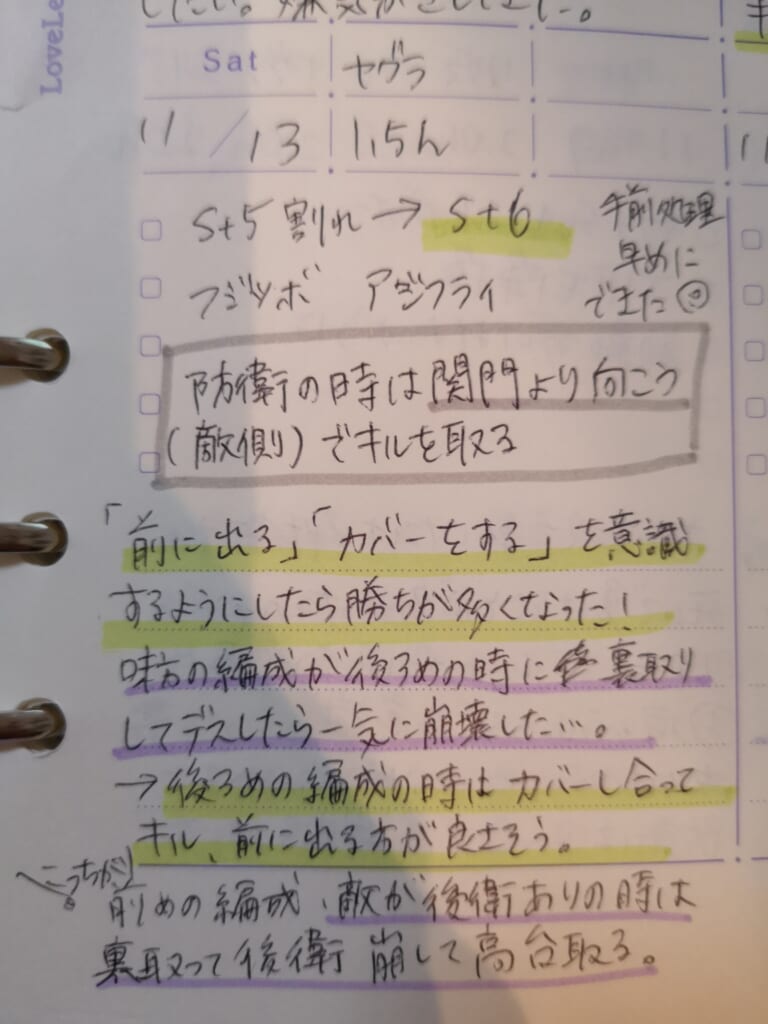 LoveLe
Sat ヤグラ
11/13 1.5h
S+5 割れ → S+6
手前処理
早めに
できた
フジツボ アジフライ
防衛の時は関門より向こう
(敵側)でキルを取る
「前に出る」「カバーをする」を意識
するようにしたら勝ちが多くなった!
味方の編成が後ろめの時に裏取り
してデスしたら一気に崩壊した…。
→後ろめの編成の時はカバーし合って
キル、前に出る方が良さそう。
前めの編成、敵が後衛ありの時は
裏取って後衛 崩して高台取る。